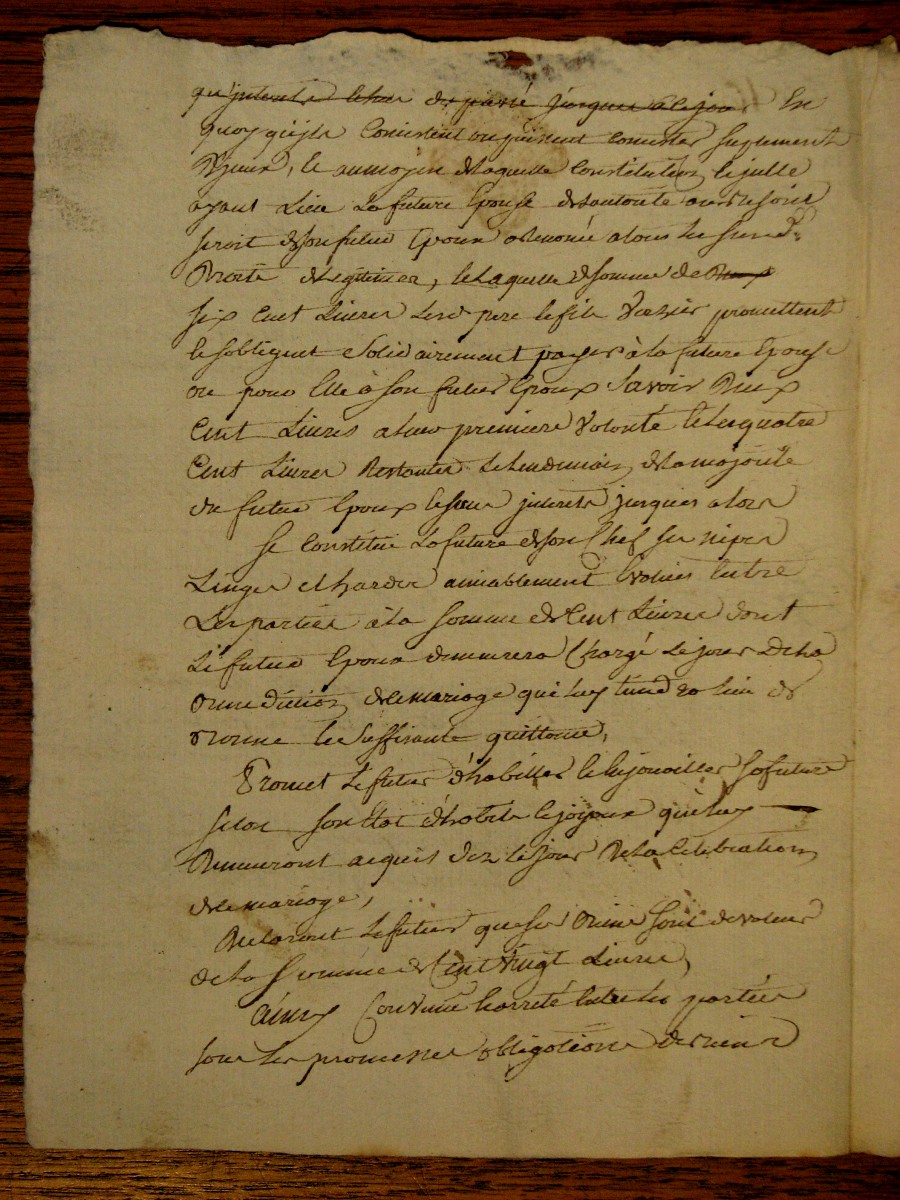 qu'interets de passé jusques a ce jour En
quoy qu'ils consistent ou puissent consister seulement
d'jceux, et au moyen de laquelle constitution, et jcelle
ayant Lieu La future Epouse de l'autorité
seroit de son futur Epoux a Renoncé a tous les susd.
Droits de Légitime, et Laquelle de somme de Deux
six Cent Livres Lesd. pere et fils Vassier promettent
et s'obligent solidairement payer à la future Epouse
ou pour Elle à son futur Epoux savoir Deux
Cent Livres a Leur premiere Volonté et Les quatre
Cent Livres Restantes Le Lendemain de la majorité
du futur Epoux et sans jnterets jusques alors
se Constitue La future de son Chef ses nipes
Linges et hardes amiablement Evalués Entre
Les parties à la somme de Cent Livres dont
Le futur Epoux demeurera Chargé Le jour de la
Benediction de ce mariage qui luy tiendra lieu de
bonne et suffisante quittance,
Promet Le futur d'habiller et bijouiller sa future
selon son Etat d'habits et joyaux qui luy
Demeureront acquis dez le jour De La Celebration
de ce mariage,
Declarant Le futur que ses Biens sont de valeur
de La somme de Cent vingt Livres,
Ainsy Convenu et arreté Entre Les parties
sous Les promesses obligations de biens